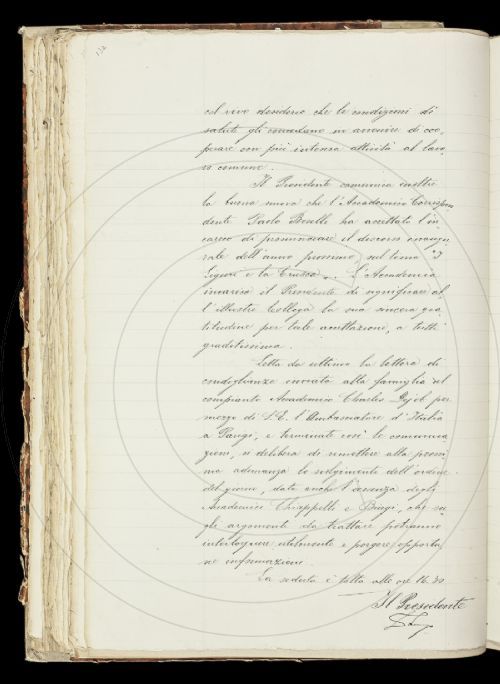 col vivo desiderio che le condizioni di
salute gli consentano in avvenire di coo-
perare con più intensa attività al lavo-
ro comune.
Il Presidente comunica inoltre
la buona nuova che l'Accademico Corrispon-
dente Paolo Boselli ha accettato l'in-
carico di pronunciare il discorso inaugu-
rale dell'anno prossimo, sul tema "I
Liguri e la Crusca". L'Accademia
incarica il Presidente di significare al-
l'illustre Collega la sua sincera gra-
titudine per tale accettazione, a tutti
graditissima.
Letta da ultimo la lettera di
condoglianze inviata alla famiglia del
compianto Accademico Charles Dejob per
mezzo di S. E. l'Ambasciatore d'Italia
a Parigi, e terminate così le comunica-
zioni, si delibera di rimettere alla prossi-
ma adunanza lo svolgimento dell'ordine
del giorno, data anche l'assenza degli
Accademici Chiappelli e Biagi, che su-
gli argomenti da trattare potranno
interloquire utilmente e porgere opportu-
ne informazioni.
La seduta è tolta alle ore 16.30
Il Presidente